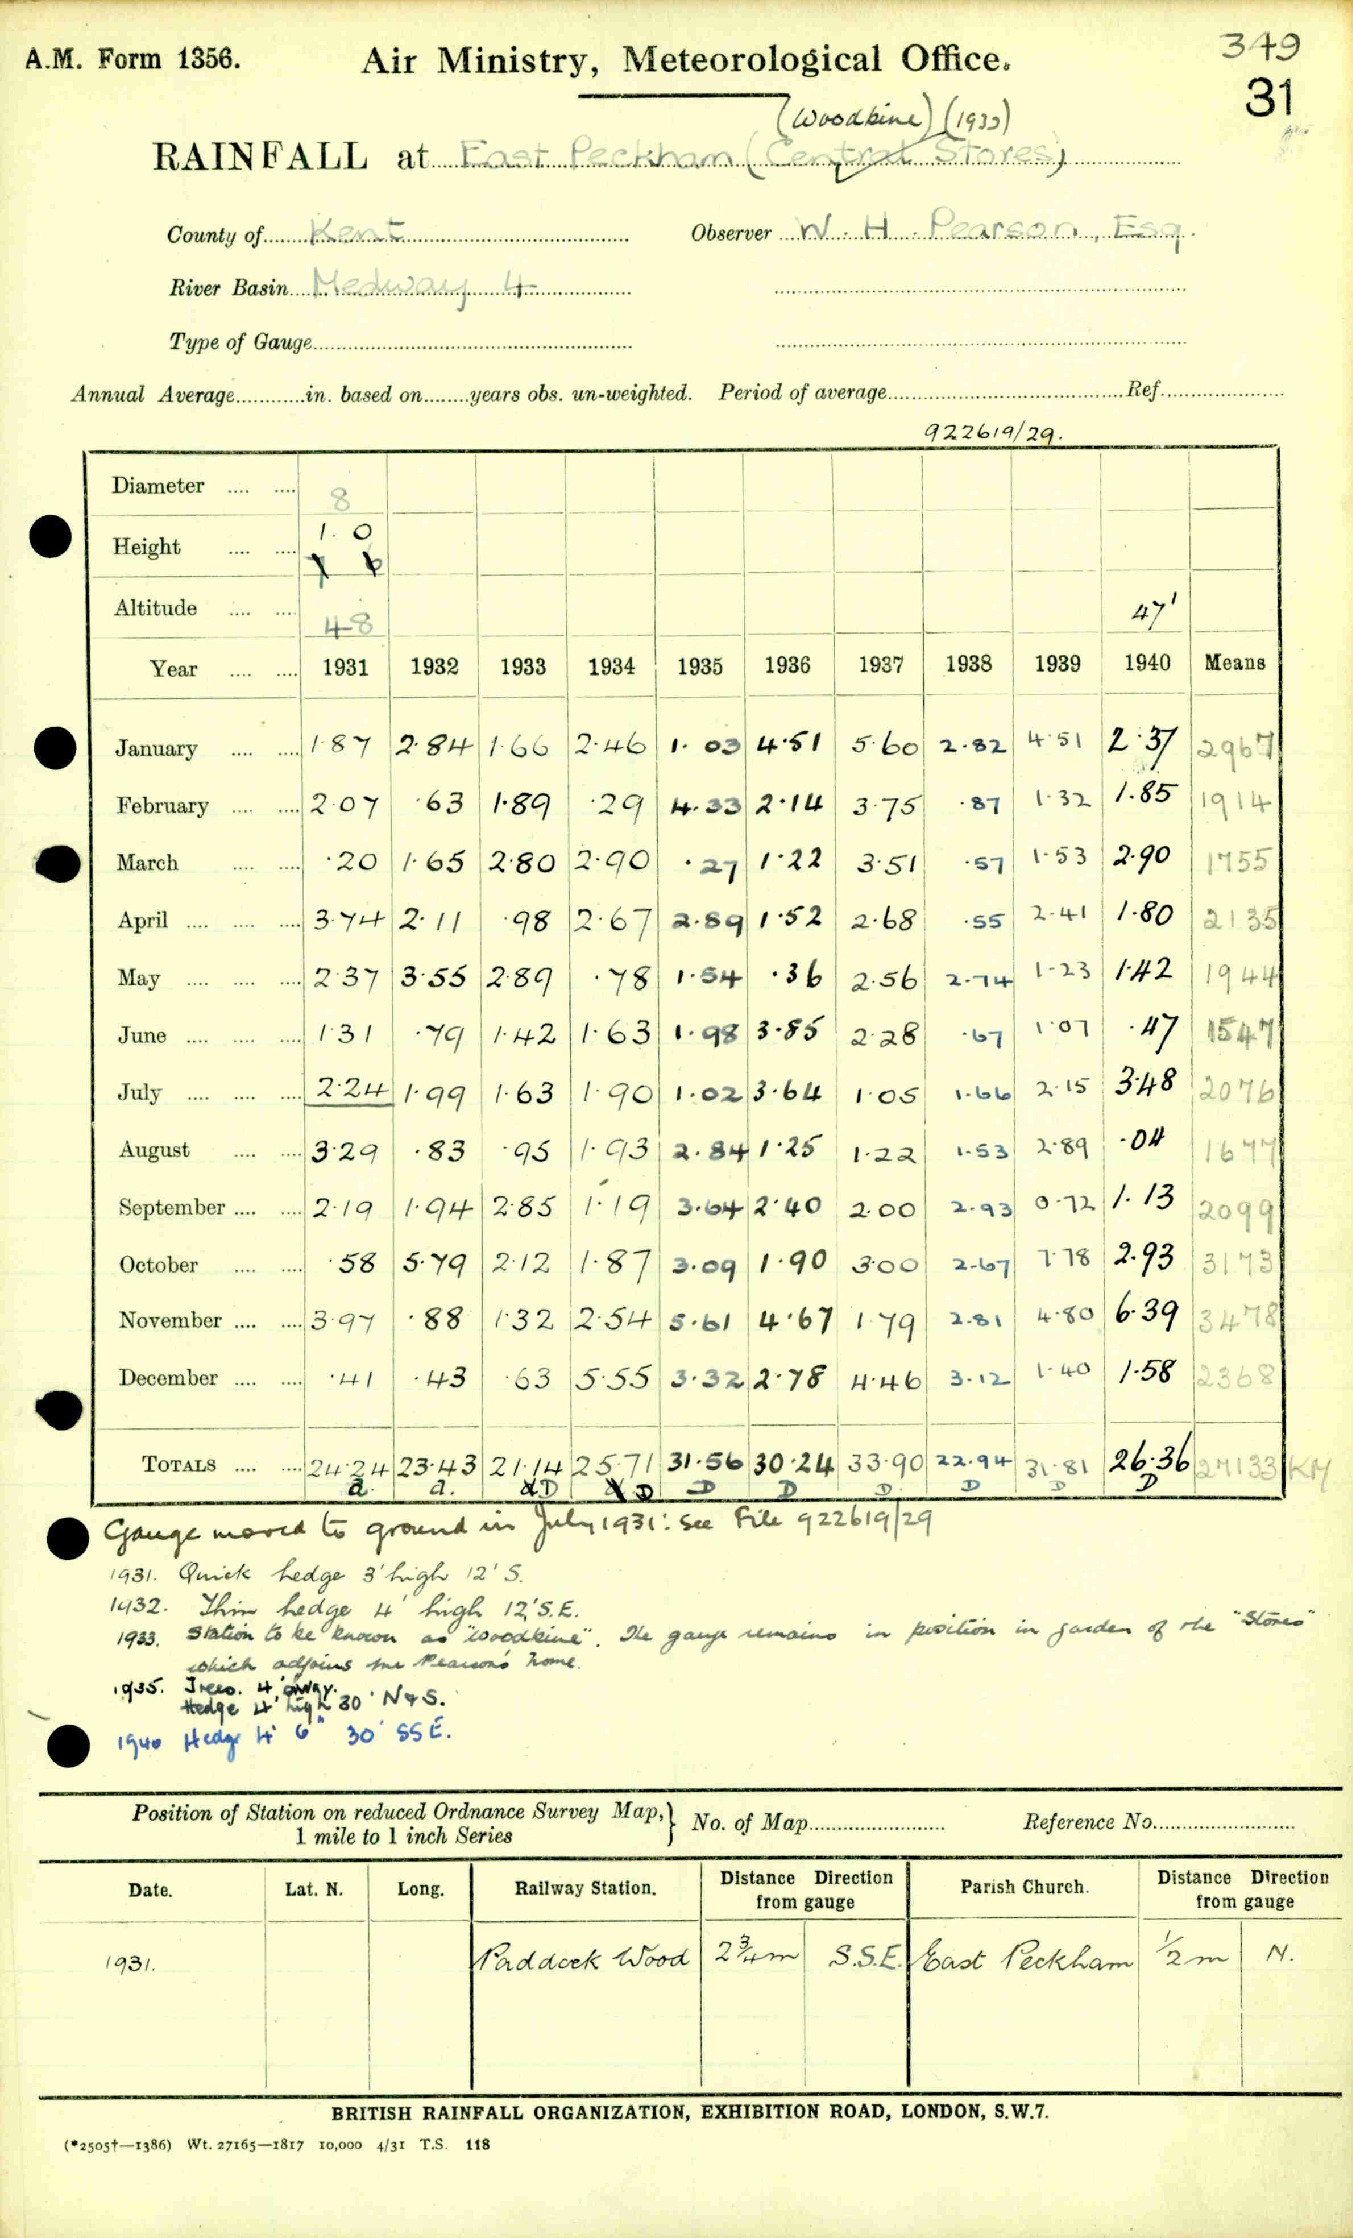 349
A.M. Form 1356. Air Ministry, Meteorological Office.
31
(Woodbine) (1933)
RAINFALL at East Peckham (Central Stores)
County of Kent Observer W. H. Pearson, Esq.
River Basin Medway 4
Type of Gauge
Annual Average in. based on years obs. un-weighted. Period of average Ref.
922619/29.
Diameter 8
Height 1. 0
1 6
Altitude 48 47'
Year 1931 1932 1933 1934 1935 1936 1937 1938 1939 1940 Means
January 1.87 2.84 1.66 2.46 1.03 4.51 5.60 2.82 4.51 2.37 2967
February 2.07 .63 1.89 .29 4.33 2.14 3.75 .87 1.32 1.85 1914
March .20 1.65 2.80 2.90 .27 1.22 3.51 .57 1.53 2.90 1755
April 3.74 2.11 .98 2.67 2.89 1.52 2.68 .55 2.41 1.80 2135
May 2.37 3.55 2.89 .78 1.54 .36 2.56 2.74 1.23 1.42 1944
June 1.31 .79 1.42 1.63 1.98 3.85 2.28 .67 1.07 .47 1547
July 2.24 1.99 1.63 1.90 1.02 3.64 1.05 1.66 2.15 3.48 2076
August 3.29 .83 .95 1.93 2.84 1.25 1.22 1.53 2.89 .04 1677
September 2.19 1.94 2.85 1.19 3.64 2.40 2.00 2.93 0.72 1.13 2099
October .58 5.79 2.12 1.87 3.09 1.90 3.00 2.67 7.78 2.93 3173
November 3.97 .88 1.32 2.54 5.61 4.67 1.79 2.81 4.80 6.39 3478
December .41 .43 .63 5.55 3.32 2.78 4.46 3.12 1.40 1.58 2368
TOTALS 24.24 23.43 21.14 25.71 31.56 30.24 33.90 22.94 31.81 26.36 27133 KM
a. a. D D D D D D D D
Gauge moved to ground in July 1931: See File 922619/29
1931. Quick hedge 3' high 12' S.
1932. Thin hedge 4' high 12' S.E.
1933. Station to be known as "Woodbine". The gauge remains in position in garden of the "Stores"
which adjoins Mr Pearson's home.
1935. Trees. 4' away.
Hedge 4' high 30' N & S.
1940 Hedge 4' 6" 30' SSE.
Position of Station on reduced Ordnance Survey Map, } No. of Map Reference No.
1 mile to 1 inch Series
Date. Lat. N. Long. Railway Station. Distance Direction from gauge Parish Church. Distance Direction from gauge
1931. Paddock Wood 2 3/4 m S.S.E. East Peckham 1/2 m N.
BRITISH RAINFALL ORGANIZATION, EXHIBITION ROAD, LONDON, S.W.7.
(*2505†—1386) Wt. 27165—1817 10,000 4/31 T.S. 118